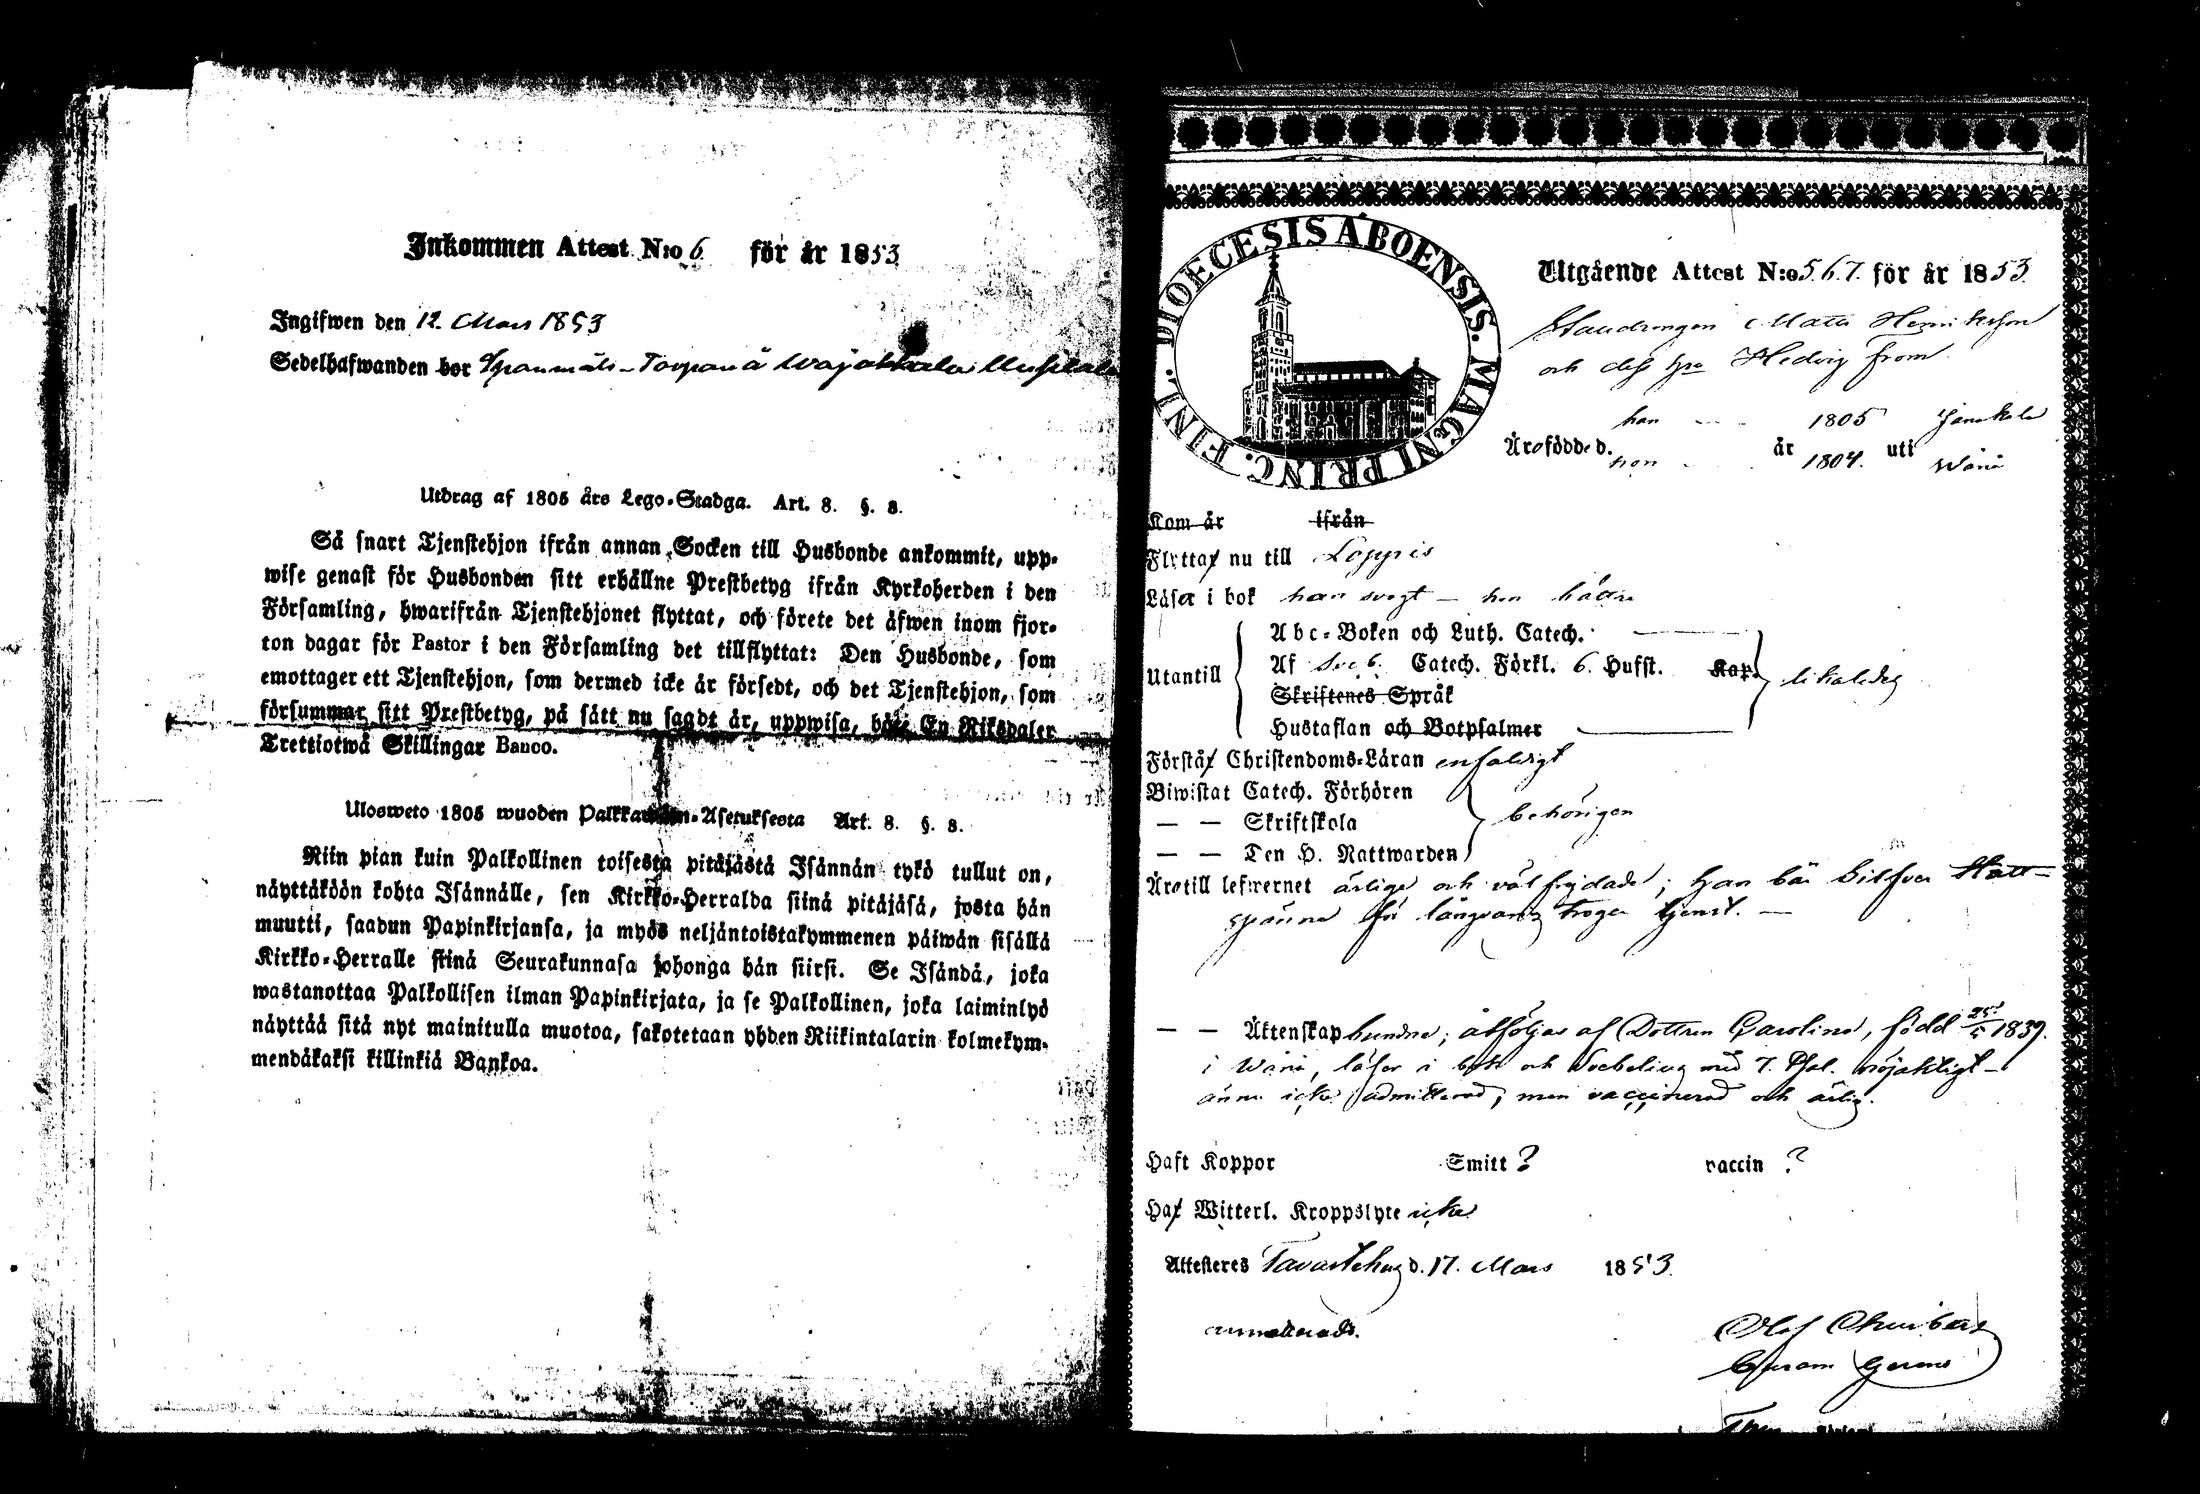 Inkommen Attest N:o 6 för år 1853
Ingifwen den 12. Mars 1853
Sedelhafwanden bor Torpan å Wajakkala
Utdrag af 1805 års Lego-Stadga. Art. 8. §. 8.
Så snart Tjenstehjon ifrån annan Socken till Husbonde ankommit, upp-
wise genast för Husbonden sitt erhållne Prestbetyg ifrån Kyrkoherden i den
Församling, hwarifrån Tjenstehjonet flyttat, och förete det äfwen inom fjor-
ton dagar för Pastor i den Församling det tillflyttat: Den Husbonde, som
emottager ett Tjenstehjon, som dermed icke är försedt, och det Tjenstehjon, som
försummar sitt Prestbetyg, på sätt nu sagdt är, uppwisa, böte En Riksdaler
Trettiotwå Skillingar Banco.
Ulosweto 1805 wuoden Palkkawäen-Asetuksesta Art. 8. §. 8.
Niin pian kuin Palkollinen toisesta pitäjästä Isännän tykö tullut on,
näyttäköön kohta Isännälle, sen Kirkko-Herralda siinä pitäjäsä, josta hän
muutti, saadun Papinkirjansa, ja myös neljäntoistakymmenen päiwän sisällä
Kirkko-Herralle siinä Seurakunnasa johonga hän siirsi. Se Isändä, joka
wastanottaa Palkollisen ilman Papinkirjata, ja se Palkollinen, joka laiminlyö
näyttää sitä nyt mainitulla muotoa, sakotetaan yhden Riikintalarin kolmekym-
mendäkaksi killinkiä Bankoa.
DIOECESIS ÅBOENSIS. MAGNI PRINC. FINL.
Utgående Attest N:o 5.6.7. för år 1853
Matts Henriksson
och dess Hedvig From
han 1805 Janakala
Äro födde d. år uti
hon 1804. Wånå
Kom år ifrån
Flytta nu till Loppis
Läser i bok han svagt – hon bättre
Abc-Boken och Luth. Catech.
Utantill Af Sveb. Catech. Förkl. 6. Hufst. Kap. likaledes
Skriftenes Språk
Hustaflan och Botpsalmer
Förstå Christendoms-Läran enfaldigt
Biwistat Catech. Förhören
— — Skriftskola behörigen
— — Den H. Nattwarden
Äro till lefwernet ärlige och väl frejdade; han bär Silfver Hatt-
spänne för långvarig trogen tjenst. —
— — Äktenskap bundne; åtföljas af Dottren Carolina, född 25/5 1839.
i Wånå, läser i bok och Svebelius med 7. Psal. nöjaktigt –
ännu icke admitterad, men vaccinerad och ärlig.
Haft Koppor Smitt ? vaccin ?
Haf Witterl. Kroppslyte icke
Attesteres Tavastehus d. 17. Mars 1853.